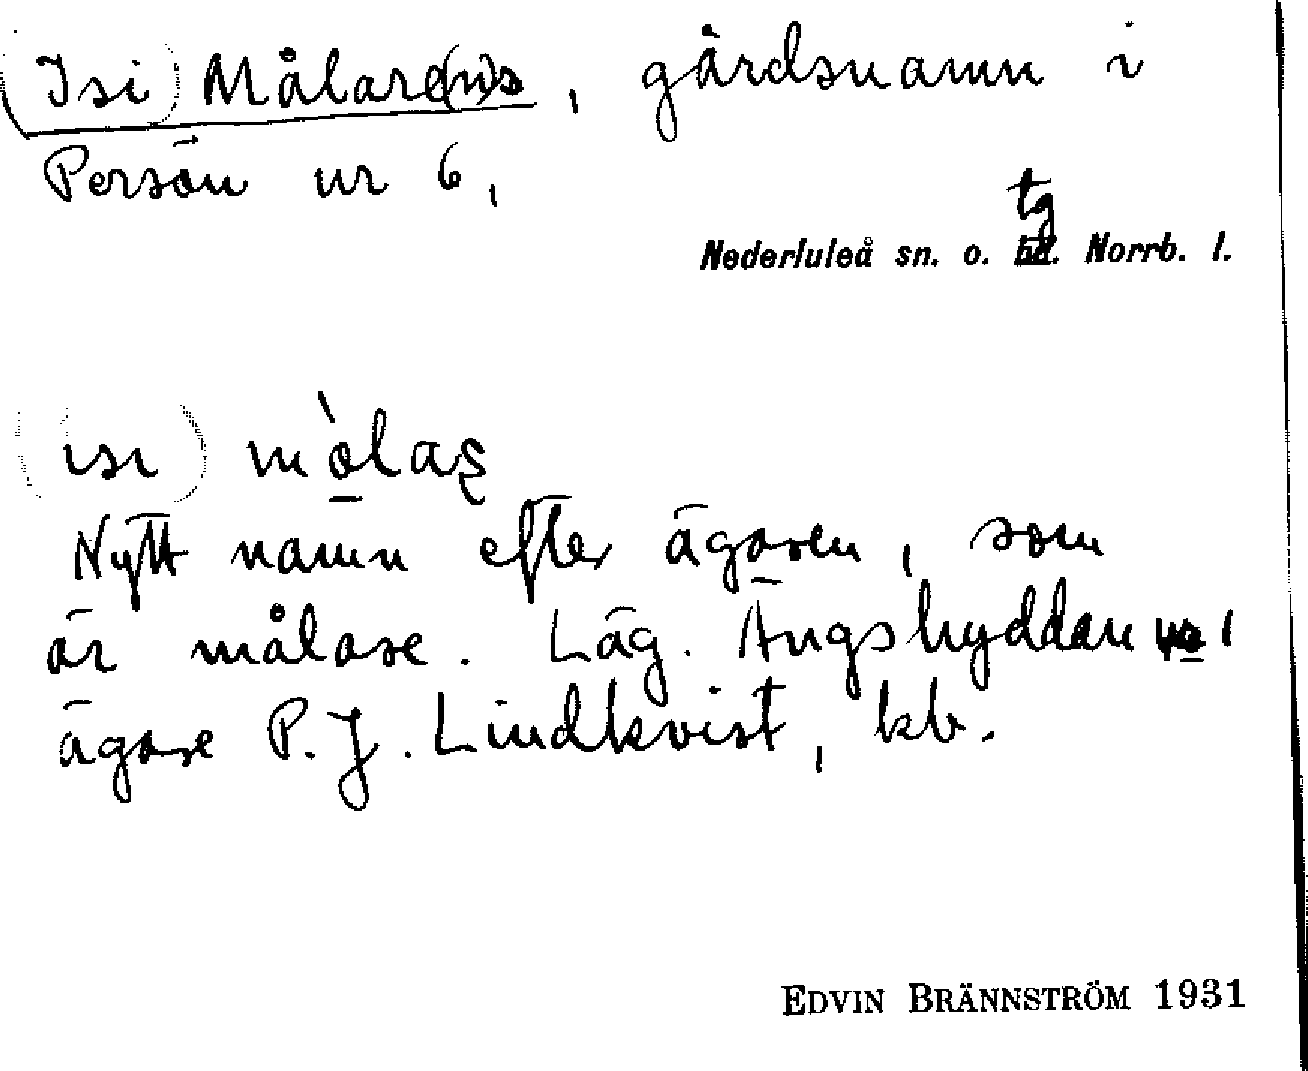 (Isi) Målare(n)s, gårdsnamn i
Persön nr 6,
tg
Nederluleå sn. o. hd. Norrb. l.
(ısı) mòlas̨
Nytt namn efter ägaren, som
är målare. Läg. Ängshyddan nº 1
ägare P. J. Lindkvist, kb.
EDVIN BRÄNNSTRÖM 1931